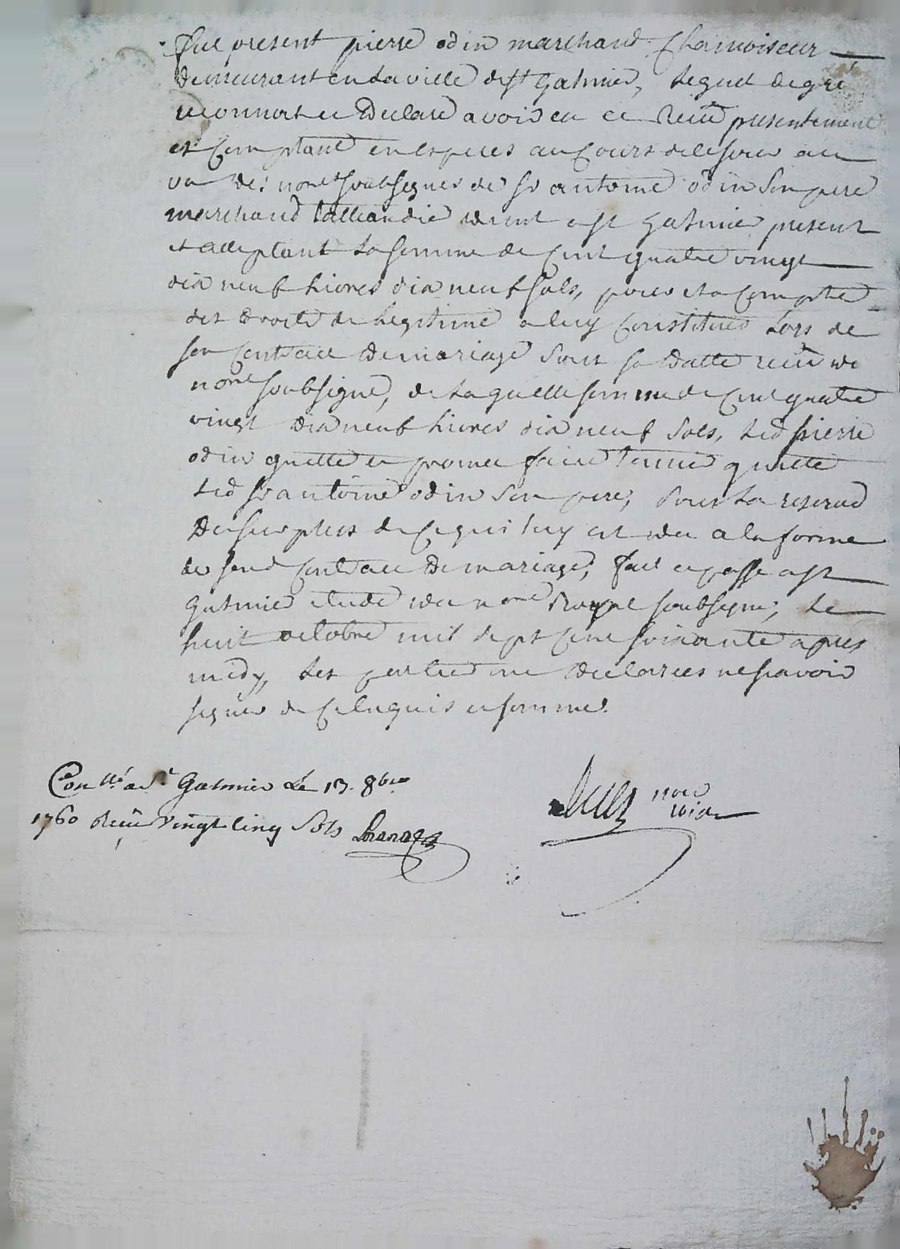 fut present pierre odin marchand Chamoiseur
demeurant en la ville de st Galmier, lequel de gré
reconnoit et declare avoir eu et Reçu presentement
et Comptant en especes au Cours de ce jour au
vu de: nore soubsigné de sr antoine odin son pere
marchand demt a st Galmier present
et acceptant la somme de Cent quatre vingt
dix neuf livres dix neuf sols, pour et a Compte
des droits de legitime a luy Constitués lors de
son Contract de mariage sous sa datte reçu
nore soubsigné, de laquelle somme de Cent quatre
vingt dix neuf livres dix neuf sols, led pierre
odin quitte et promet faire tenir quitte
led sr antoine odin son pere, sous la reserve
du surplus de Ce qui luy est du a la forme
de sond Contract de mariage, fait et passé a st
Galmier etude du nore Royal soubsigné, le
huit octobre mil sept cent soixante apres
midy, les parties ont declarées ne sçavoir
signer de Ce enquis et sommé.
Conllé a st Galmier Le 13. 8bre
1760 Reçu vingt cinq sols
nore